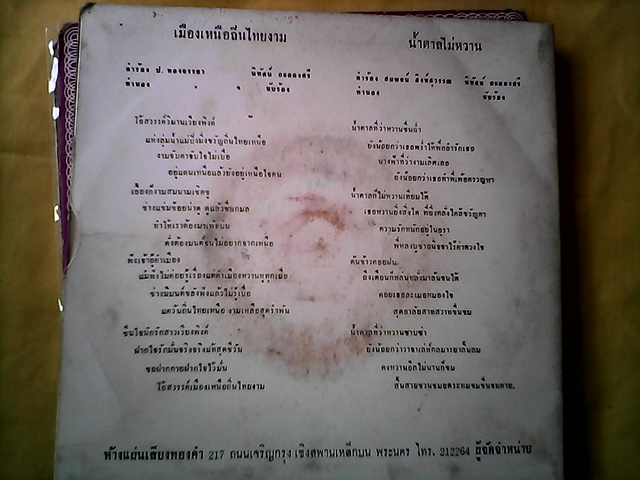 เมืองเหนือถิ่นไทยงาม
คำร้อง ป. ทองอรรถา นิทัศน์ ละอองศรี
ทำนอง " " ขับร้อง
โอ้สวรรค์วิมานเวียงพิงค์
แห่งลุ่มน้ำแม่ปิงมิ่งขวัญถิ่นไทยเหนือ
งามจับตาจับใจไม่เบื่อ
อยู่แดนเหนือแล้วยังอยู่เหนือใจคน
เอื้องก็งามสมนามเชิดชู
ช่างแช่มช้อยน่าดู ดูแล้วชื่นกมล
ทำให้เราต้องมาเพ้อบ่น
ดั่งต้องมนต์จนไม่อยากจากเหนือ
ฟังเจ้าอู้คำเมือง
แม้ฟังไม่ค่อยรู้เรื่องแต่คำเมืองหวานหูทุกเมื่อ
ช่างมีมนต์ขลังฟังแล้วไม่รู้เบื่อ
แดวันถิ่นไทยเหนือ งามเหลือสุดรำพัน
ชื่นใจนักรักสาวเวียงพิงค์
ฝากใจรักมั่นจริงจริงแท้สุดชีวัน
ขอฝากกายฝากใจไว้มั่น
โอ้สวรรค์เมืองเหนือถิ่นไทยงาม
น้ำตาลไม่หวาน
คำร้อง สมพงษ์ นิทัศน์ ละอองศรี
ทำนอง ขับร้อง
น้ำตาลที่ว่าหวานชื่นฉ่ำ
ยังน้อยกว่าเธอพร่ำให้พี่ถลำรักเธอ
นางฟ้าที่ว่างามเลิศเลอ
ยังน้อยกว่าเธอทำพี่เพ้อครวญหา
น้ำตาลก็ไม่หวานเทียมได้
เธอหวานยิ่งสิ่งใด ที่ยิ่งคลั่งไคล้ขวัญตา
ความรักหนักอยู่ในอุรา
พี่หลงบูชาถนิจจาไว้ค่าดวงใจ
ต้นข้าวคอยฝน
ถึงเดือนก็หล่นหลั่งมาล้นจนได้
คอยเธอละเมอหมองใจ
สุดอาลัยสายสวาทชื่นชม
น้ำตาลที่ว่าหวานซาบซ่า
ยังน้อยกว่าวาจาเล่ห์กลมารยาลิ้นลม
คงหวานอีกไม่นานก็ขม
สิ้นสายชวนชมอดระทมจมชื่นจนตาย.
ห้างแผ่นเสียงทองคำ 217 ถนนเจริญกรุง เชิงสะพานเหล็กบน พระนคร โทร. 212264 ผู้จัดจำหน่าย